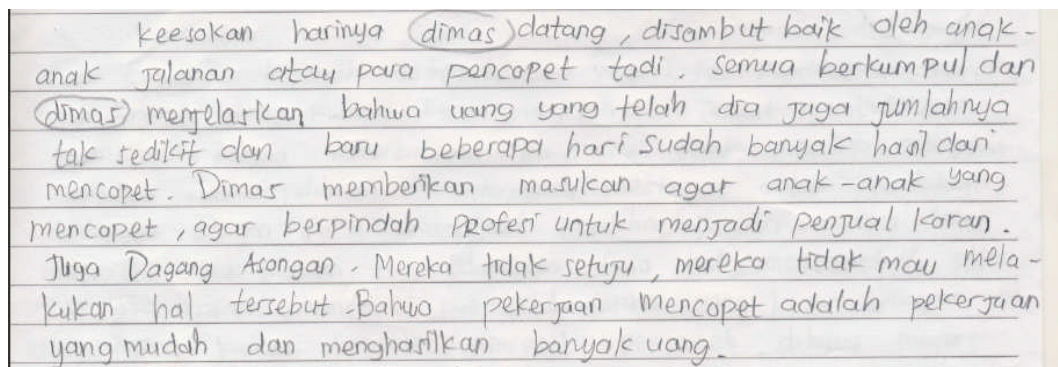 Keesokan harinya dimas datang, disambut baik oleh anak-
anak jalanan atau para pencopet tadi. Semua berkumpul dan
dimas menjelaskan bahwa uang yang telah dia jaga jumlahnya
tak sedikit dan baru beberapa hari sudah banyak hasil dari
mencopet. Dimas memberikan masukan agar anak-anak yang
mencopet, agar berpindah Profesi untuk menjadi penjual Koran.
Juga Dagang Asongan. Mereka tidak setuju, mereka tidak mau mela-
kukan hal tersebut. Bahwa pekerjaan mencopet adalah pekerjaan
yang mudah dan menghasilkan banyak uang.